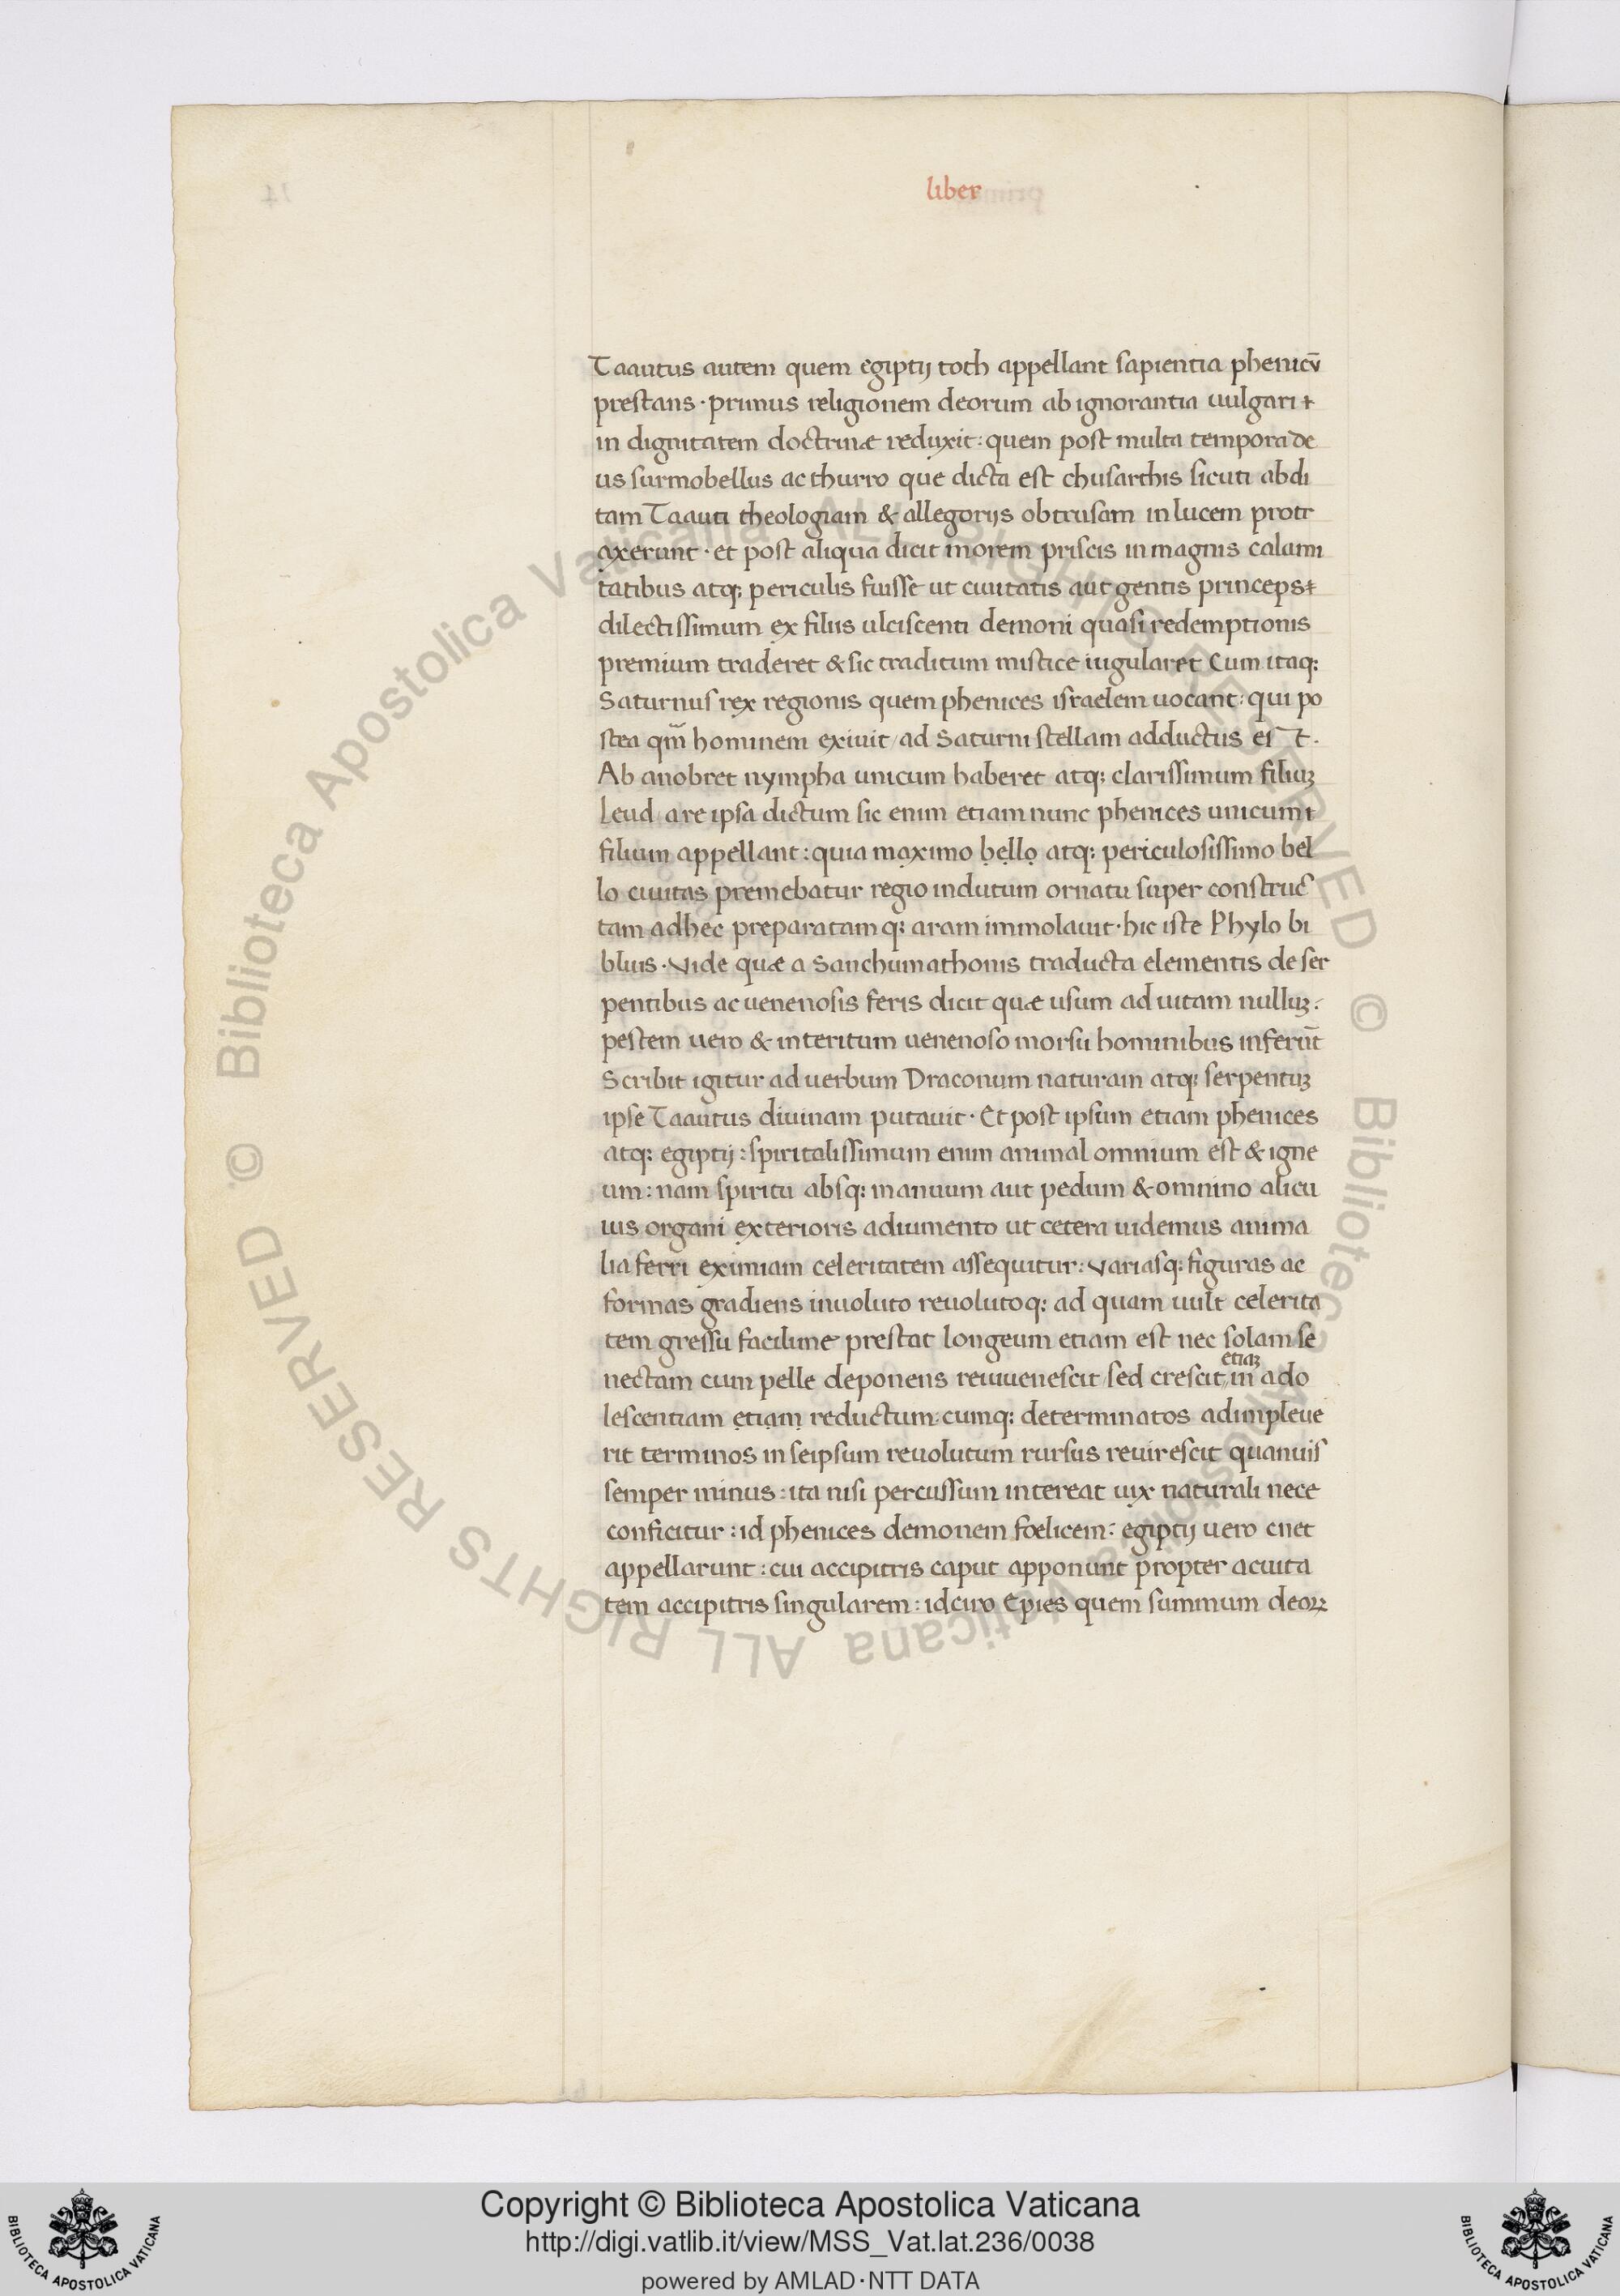 liber
Taautus autem quem egiptij toth appellant sapientia phenicū
prestans · primus religionem deorum ab ignorantia uulgari
in dignitatem doctrinæ reduxit : quem post multa tempora de
us surmobellus ac thurro que dicta est chusarthis sicuti abdi
tam Taauti theologiam & allegorijs obtrusam in lucem protr
axerunt · et post aliqua dicit morem priscis in magnis calami
tatibus atq; periculis fuisse ut ciuitatis aut gentis princeps
dilectissimum ex filiis ulciscenti demoni quasi redemptionis
premium traderet & sic traditum mistice iugularet Cum itaq;
Saturnus rex regionis quem phenices israelem uocant : qui po
stea qm̄ hominem exiuit / ad Saturni stellam adductus est .
Ab anobret nympha unicum haberet atq; clarissimum filiuꝫ
Leud a re ipsa dictum sic enim etiam nunc phenices unicum
filium appellant : quia maximo bello atq; periculosissimo bel
lo ciuitas premebatur regio indutum ornatu super construc
tam adhec preparatam q; aram immolauit · hic iste Phylo bi
blius · Vide quæ a Sanchumathonis traducta elementis de ser
pentibus ac uenenosis feris dicit quæ usum ad uitam nulluꝫ :
pestem uero & interitum uenenoso morsu hominibus inferūt
Scribit igitur ad uerbum Draconum naturam atq; serpentiuꝫ
ipse Taautus diuinam putauit · Et post ipsum etiam phenices
atq; egiptij : spiritalissimum enim animal omnium est & igne
um : nam spiritu absq; manuum aut pedum & omnino alicu
ius organi exterioris adiumento ut cetera uidemus anima
lia ferri eximiam celeritatem assequitur : Variasq; figuras ac
formas gradiens inuoluto reuoluto q; ad quam uult celerita
tem gressu facilime prestat longeum etiam est nec solam se
etiaꝫ
nectam cum pelle deponens reiuuenescit / sed crescit / in ado
lescentiam etiam reductum : cumq; determinatos adimpleue
rit terminos in seipsum reuolutum rursus reuirescit quanuis
semper minus : ita nisi percussum intereat uix naturali nece
conficitur : id phenices demonem fœlicem : egiptij uero cnet
appellarunt : cui accipitris caput apponunt propter acuita
tem accipitris singularem : idciro Epies quem summum deoꝝ
Copyright © Biblioteca Apostolica Vaticana
http://digi.vatlib.it/view/MSS_Vat.lat.236/0038
powered by AMLAD·NTT DATA
BIBLIOTECA APOSTOLICA VATICANA
BIBLIOTECA APOSTOLICA VATICANA
© Biblioteca Apostolica Vaticana ALL RIGHTS RESERVED © Biblioteca Apostolica Vaticana ALL RIGHTS RESERVED